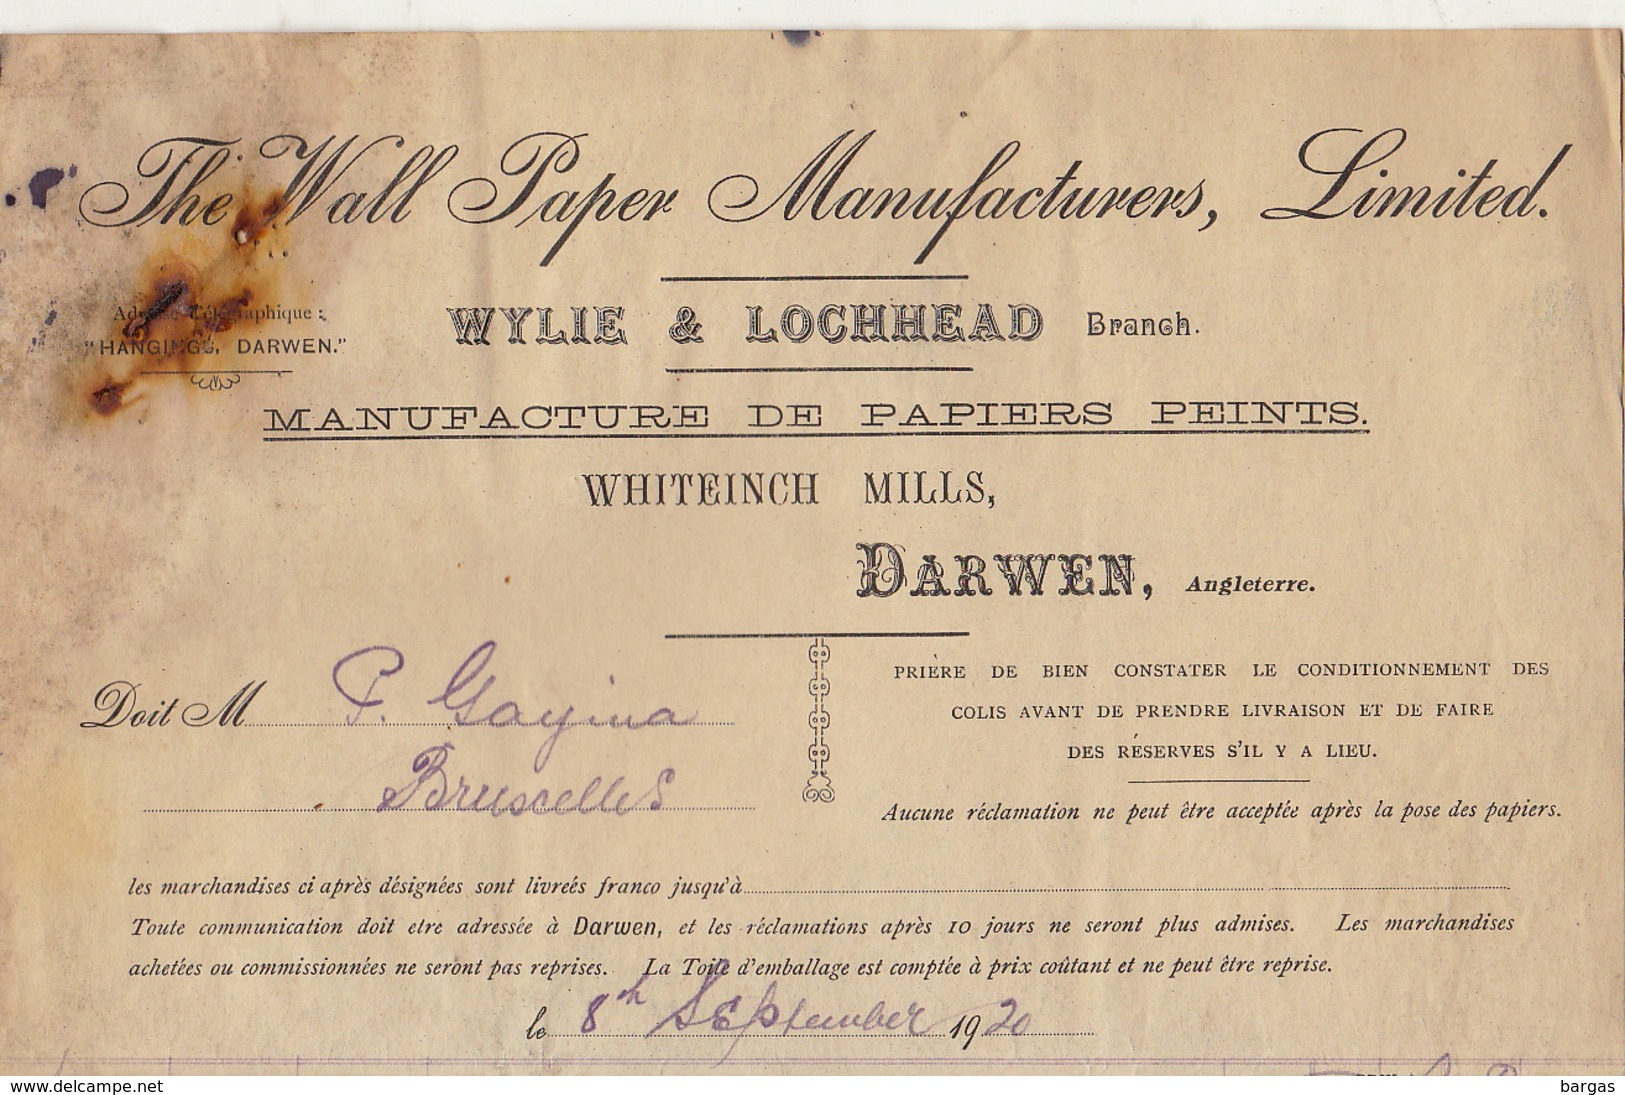 The Wall Paper Manufacturers, Limited.
Adresse Télégraphique :
"HANGINGS, DARWEN."
WYLIE & LOCHHEAD Branch.
MANUFACTURE DE PAPIERS PEINTS.
WHITEINCH MILLS,
DARWEN, Angleterre.
Doit M
Bruxelles
PRIÈRE DE BIEN CONSTATER LE CONDITIONNEMENT DES
COLIS AVANT DE PRENDRE LIVRAISON ET DE FAIRE
DES RÉSERVES S'IL Y A LIEU.
Aucune réclamation ne peut être acceptée après la pose des papiers.
les marchandises ci après désignées sont livreés franco jusqu'à
Toute communication doit etre adressée à Darwen, et les réclamations après 10 jours ne seront plus admises. Les marchandises
achetées ou commissionnées ne seront pas reprises. La Toile d'emballage est comptée à prix coûtant et ne peut être reprise.
le 8th September 1920
www.delcampe.net
bargas